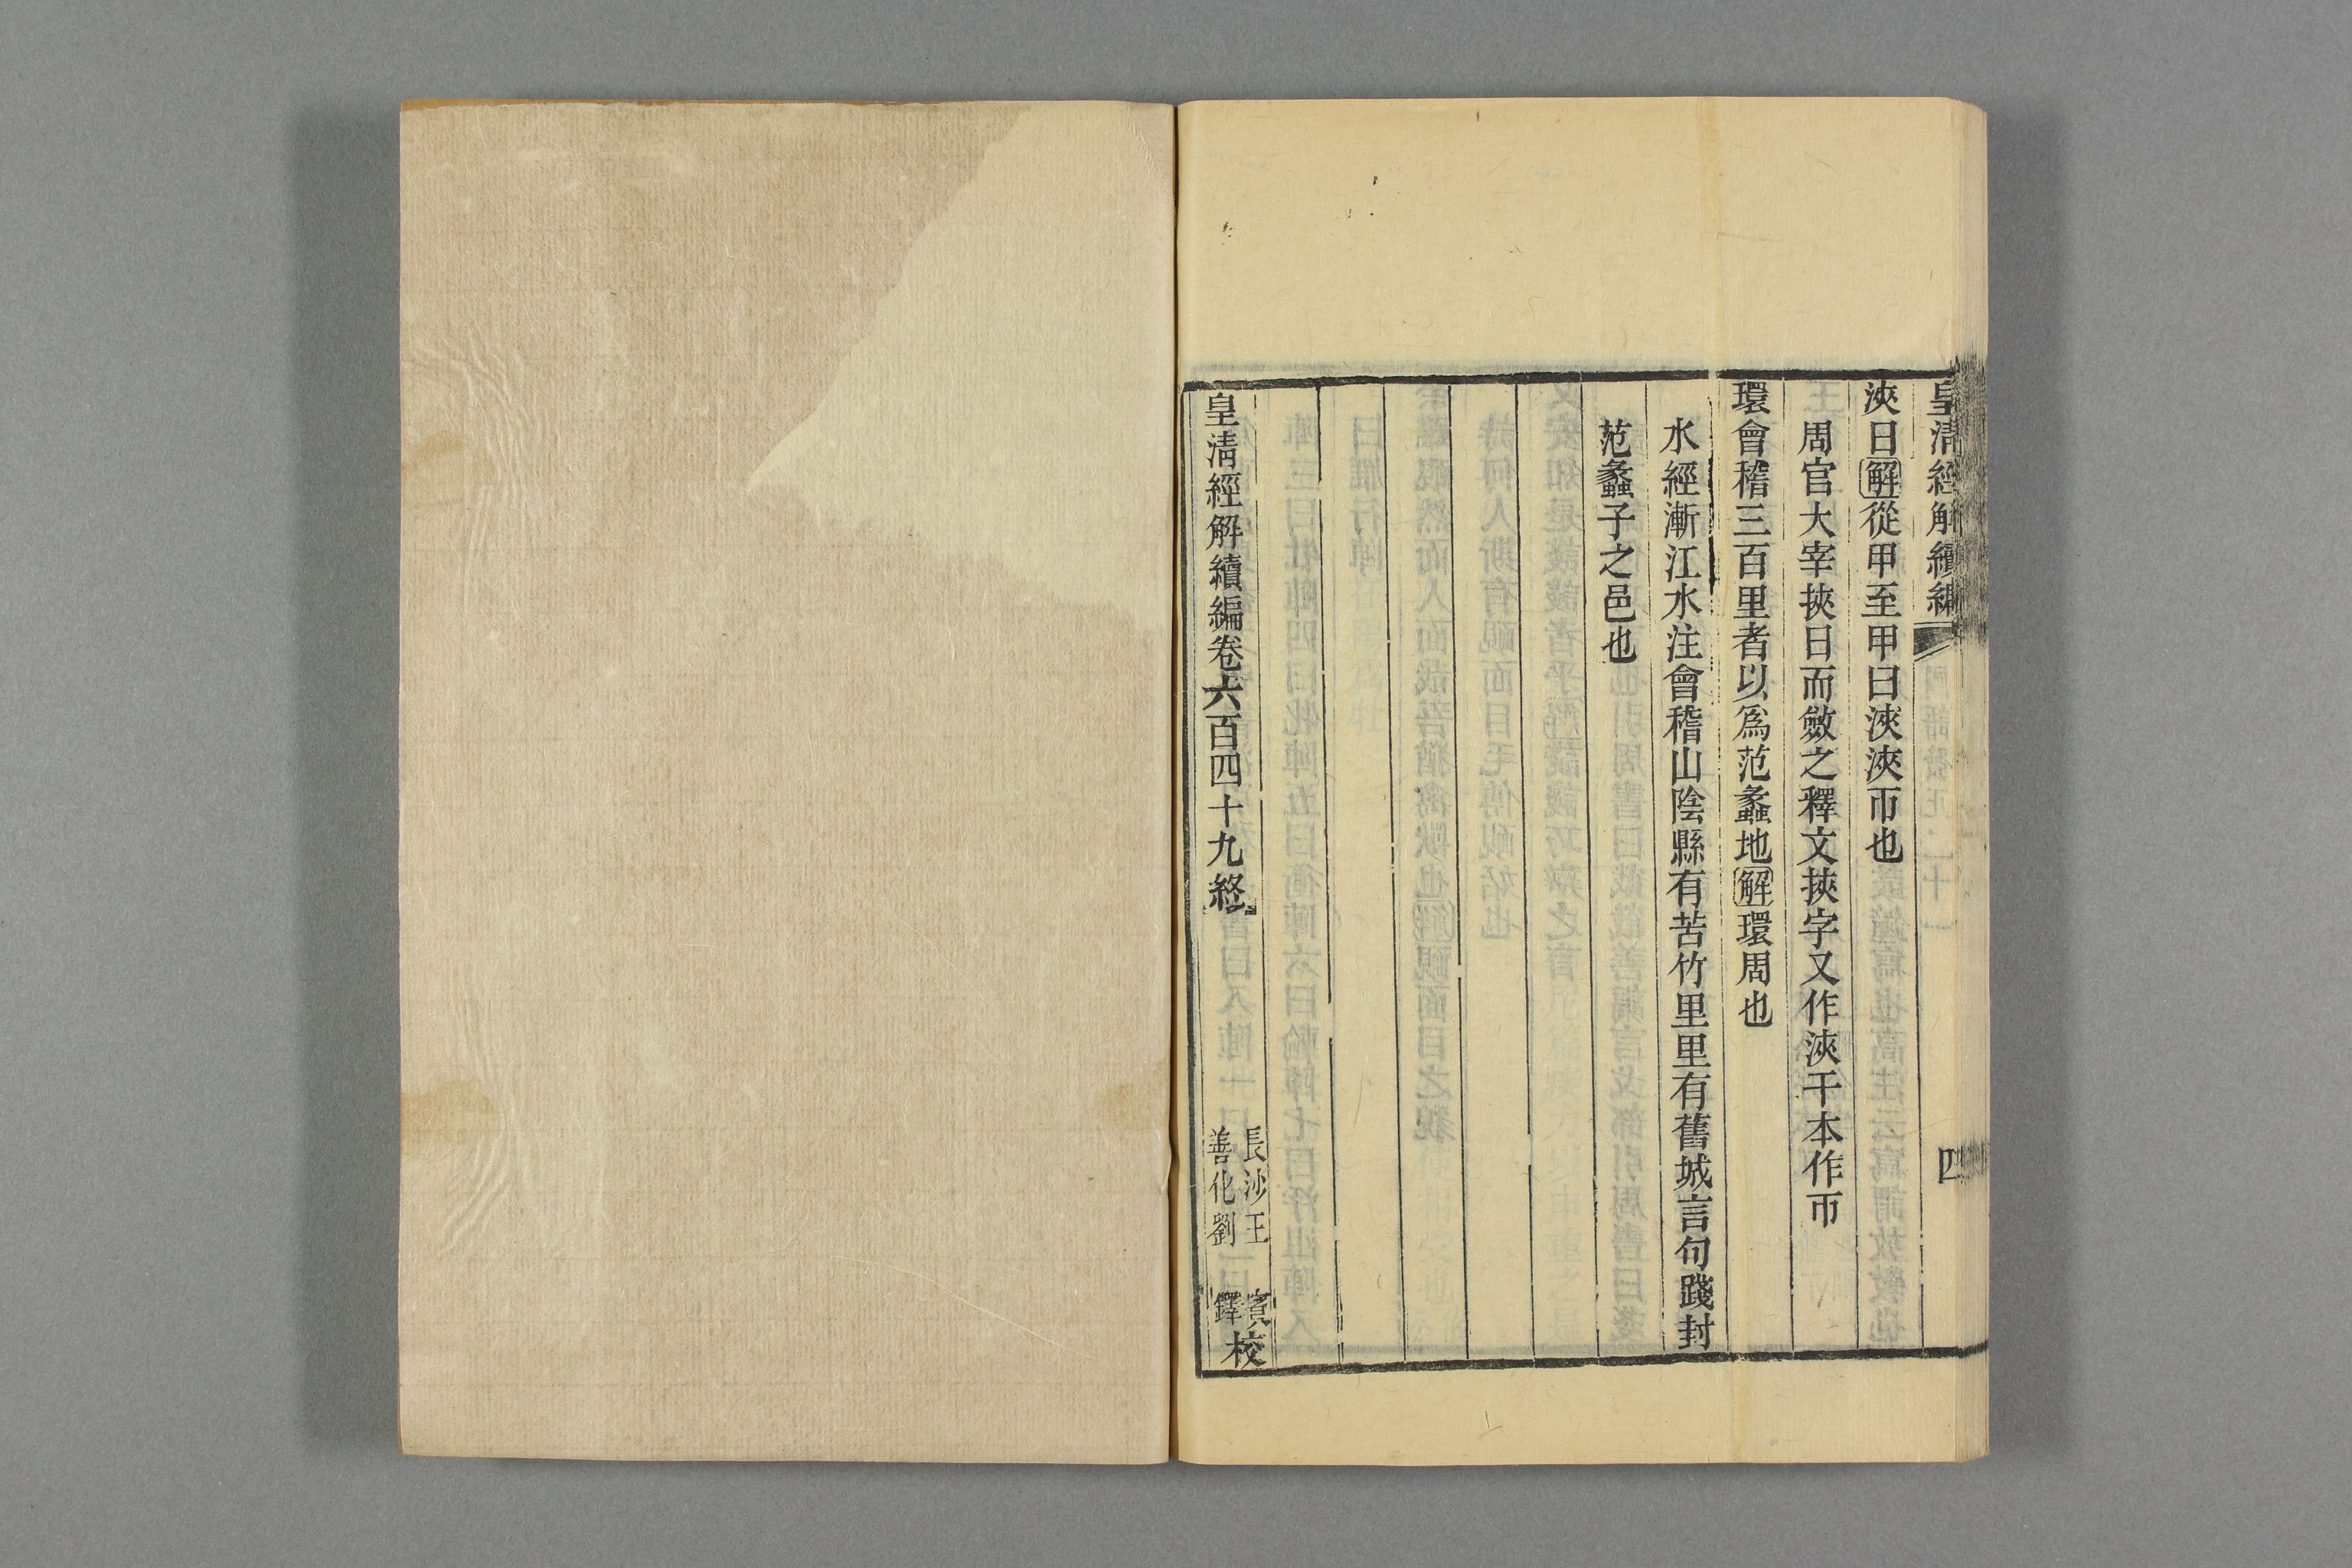 皇清經解續編
四
浹日解從甲至甲曰浹浹帀也
周官大宰挾日而斂之釋文挾字又作浹干本作帀
環會稽三百里者以爲范蠡地解環周也
水經漸江水注會稽山陰縣有苦竹里里有舊城言句踐封
范蠡子之邑也
皇清經解續編卷六百四十九終
長沙王 賓
善化劉 鐸校